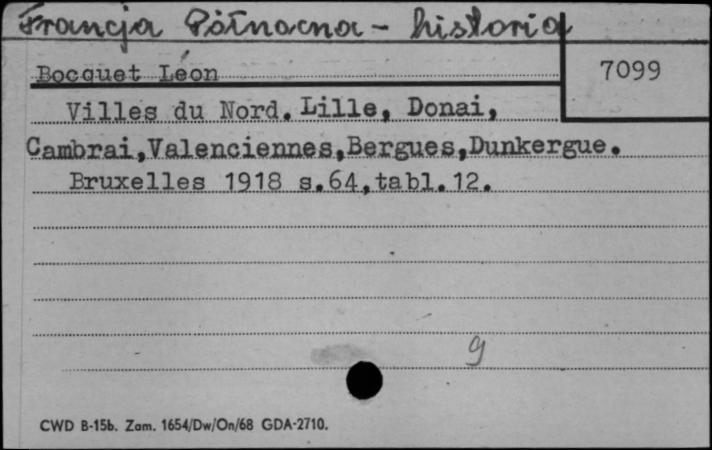 Francja Północna - historia
Bocquet Léon
7099
Villes du Nord. Lille, Donai,
Cambrai,Valenciennes,Bergues,Dunkergue.
Bruxelles 1918 s.64,tabl.12.
g
CWD B-15b. Zam. 1654/Dw/On/68 GDA-2710.